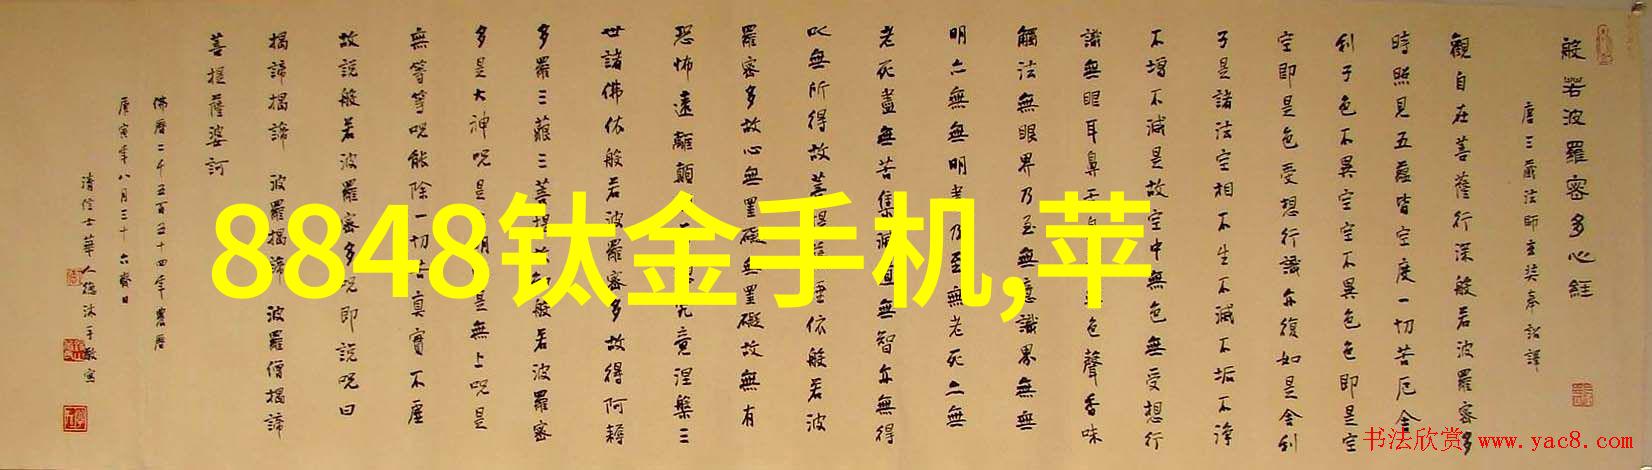 般若波羅密多心經
唐三藏法師玄奘奉詔譯
觀自在菩薩行深般若波羅密多
時照見五蘊皆空度一切苦厄舍
利子色不異空空不異色色即是空
空即是色受想行識亦復如是舍利
子是諸法空相不生不滅不垢不淨
不增不減是故空中無色無受想行
識無眼耳鼻舌身意無色聲香味
觸法無眼界乃至無意識界無無
明亦無無明盡乃至無老死亦無
老死盡無苦集滅道無智亦無得
以無所得故菩提薩埵依般若波
羅密多故心無罣礙無罣礙故無有
恐怖遠離顛
究竟涅槃三
世諸佛依般若波羅密多故得阿耨
多羅三藐三菩提故知般若波羅密
多是大神咒是
是無上咒是
無等等咒能除一切苦真實不虛
故說般若波羅密多咒即說咒曰
揭諦揭諦 波羅揭諦 波羅僧揭諦
菩提薩婆訶
佛曆二千五百五十四年農曆
庚寅年八月三十六齋日
清信士華人德沐手敬寫
8848钛金手机,苹
书法欣赏 www.yac8.com